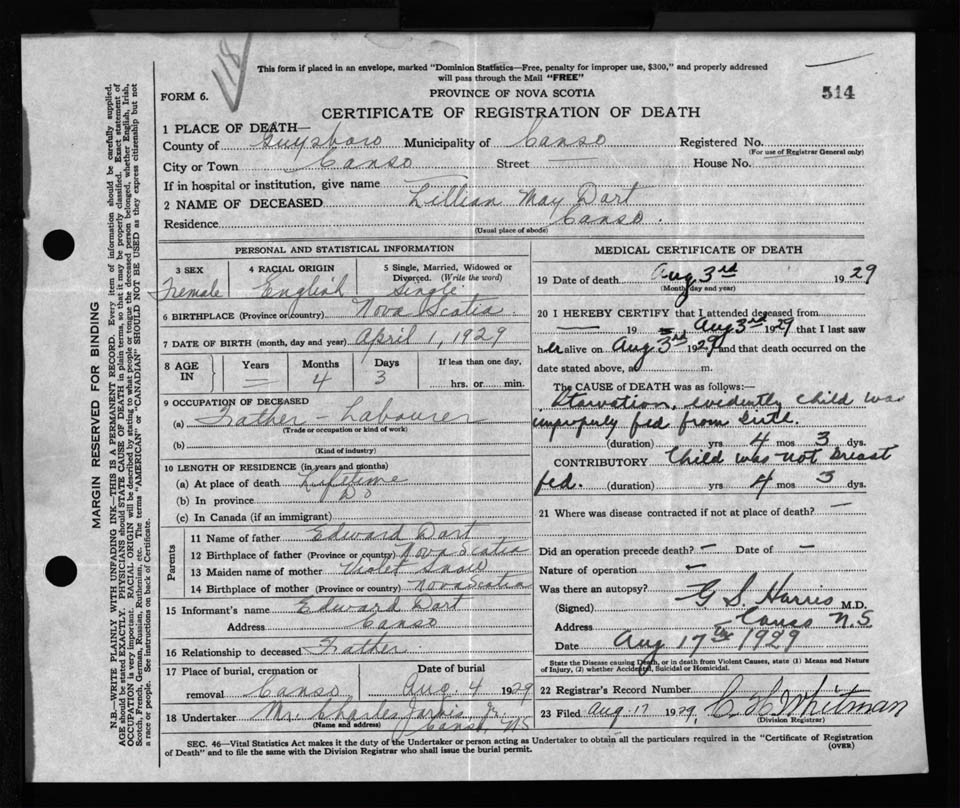 118
This form if placed in an envelope, marked "Dominion Statistics—Free, penalty for improper use, $300," and properly addressed
will pass through the Mail "FREE"
FORM 6.
PROVINCE OF NOVA SCOTIA
514
CERTIFICATE OF REGISTRATION OF DEATH
1 PLACE OF DEATH—
County of Guysboro Municipality of Canso Registered No.
(For use of Registrar General only)
City or Town Canso Street — House No.
If in hospital or institution, give name
2 NAME OF DECEASED Lillian May Dart
Residence Canso.
(Usual place of abode)
PERSONAL AND STATISTICAL INFORMATION
3 SEX 4 RACIAL ORIGIN 5 Single, Married, Widowed or Divorced. (Write the word)
Female English Single
6 BIRTHPLACE (Province or country) Nova Scotia
7 DATE OF BIRTH (month, day and year) April 1, 1929
8 AGE IN Years Months Days If less than one day,
— 4 3 hrs. or min.
9 OCCUPATION OF DECEASED
(a) Father - Labourer
(Trade or occupation or kind of work)
(b)
(Kind of industry)
10 LENGTH OF RESIDENCE (in years and months)
(a) At place of death Lifetime
(b) In province Do
(c) In Canada (if an immigrant)
Parents
11 Name of father Edward Dart
12 Birthplace of father (Province or country) Nova Scotia
13 Maiden name of mother Violet
14 Birthplace of mother (Province or country) Nova Scotia
15 Informant's name Edward Dart
Address Canso
16 Relationship to deceased Father
17 Place of burial, cremation or Date of burial
removal Canso Aug. 4 1929
18 Undertaker Mr. Charles Jarvis, Jr.
(Name and address) Canso, NS
MEDICAL CERTIFICATE OF DEATH
19 Date of death Aug 3rd 1929
(Month, day and year)
20 I HEREBY CERTIFY that I attended deceased from
— 19 Aug 3rd 1929 that I last saw
her alive on Aug 3rd 1929 and that death occurred on the
date stated above, a m.
The CAUSE of DEATH was as follows:—
Starvation, evidently child was
improperly fed from birth.
(duration) yrs 4 mos 3 dys.
CONTRIBUTORY Child was not breast
fed. (duration) yrs 4 mos 3 dys.
21 Where was disease contracted if not at place of death? —
Did an operation precede death? — Date of —
Nature of operation —
Was there an autopsy?
(Signed) G S Harris M.D.
Address Canso N.S
Date Aug 17th 1929
State the Disease causing Death, or in death from Violent Causes, state (1) Means and Nature
of Injury, (2) whether Accidental, Suicidal or Homicidal.
22 Registrar's Record Number
23 Filed Aug. 17 1929, C. H. Whitman
(Division Registrar)
SEC. 46—Vital Statistics Act makes it the duty of the Undertaker or person acting as Undertaker to obtain all the particulars required in the "Certificate of Registration
of Death" and to file the same with the Division Registrar who shall issue the burial permit.
(OVER)
MARGIN RESERVED FOR BINDING
N.B.—WRITE PLAINLY WITH UNFADING INK—THIS IS A PERMANENT RECORD. Every item of information should be carefully supplied.
AGE should be stated EXACTLY. PHYSICIANS should STATE CAUSE OF DEATH in plain terms, so that it may be properly classified. Exact statement of
OCCUPATION is very important. RACIAL ORIGIN will be described by stating to what people or tongue the deceased person belonged, whether English, Irish,
Scotch, French, German, Russian, Ruthenian, etc. The terms "AMERICAN" or "CANADIAN" SHOULD NOT BE USED as they express citizenship but not
a race or people. See instructions on back of Certificate.